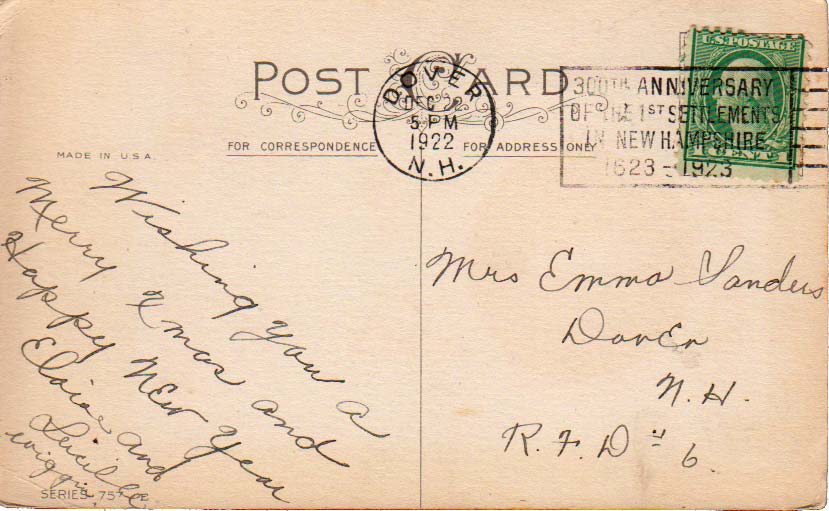 POST CARD
DOVER
DEC 22
5 PM
1922
N.H.
300TH ANNIVERSARY
OF THE 1ST SETTLEMENTS
IN NEW HAMPSHIRE
1623-1923
U.S. POSTAGE
CENT 1
MADE IN U.S.A.
FOR CORRESPONDENCE
FOR ADDRESS ONLY
Wishing you a
Merry Xmas and
Happy New Year
Eloise and
Lucille
Wiggin
SERIES 757 E
Mrs Emma Sanders
Dover
N.H.
R.F.D " 6.